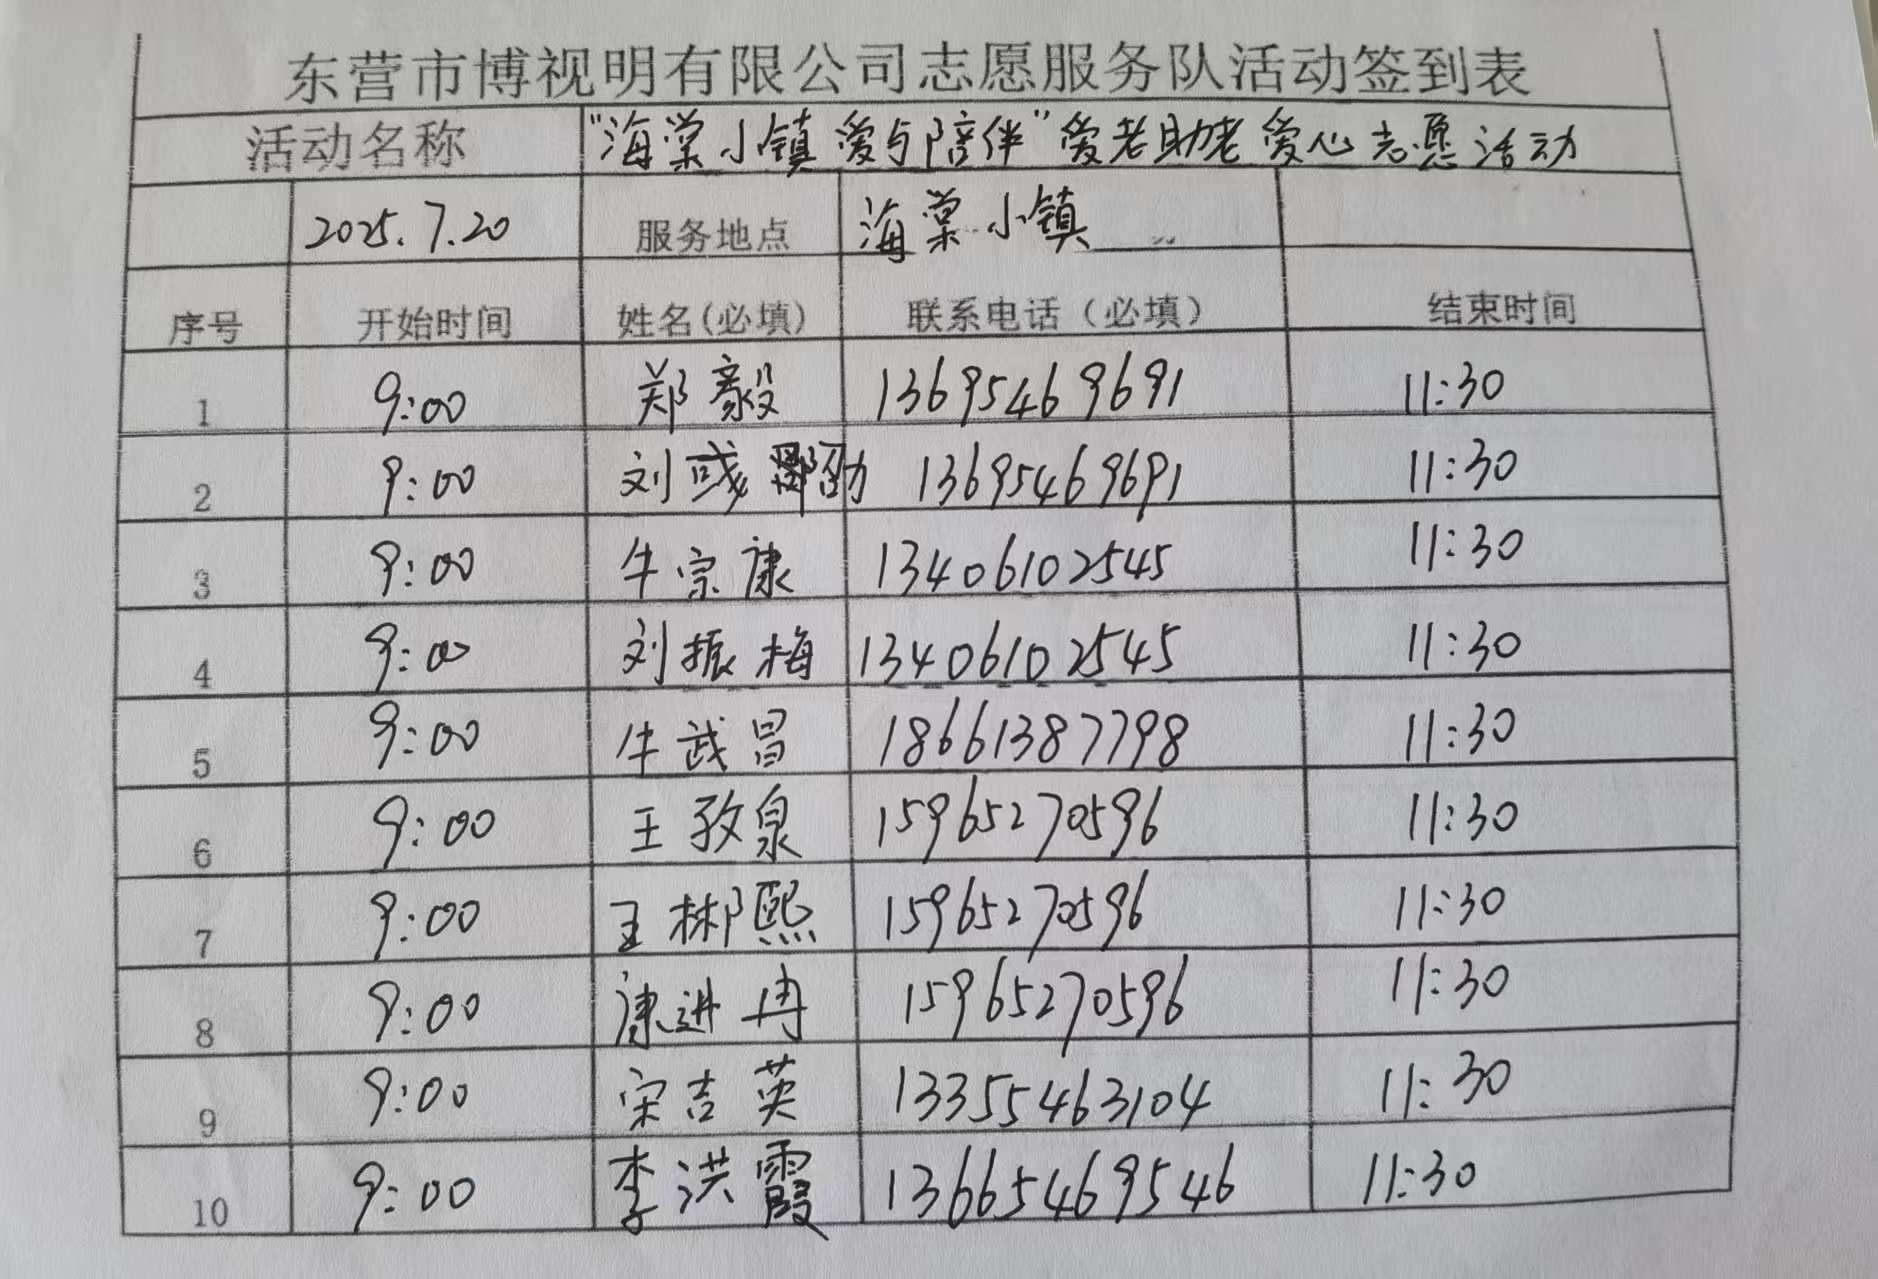 东营市博视明有限公司志愿服务队活动签到表
活动名称 "海棠小镇 爱与陪伴"爱老助老爱心志愿活动
2025.7.20 服务地点 海棠小镇
序号 开始时间 姓名(必填) 联系电话（必填） 结束时间
1 9:00 郑毅 13695469691 11:30
2 9:00 刘彧劭 13695469691 11:30
3 9:00 牛宗康 13406102545 11:30
4 9:00 刘振梅 13406102545 11:30
5 9:00 牛武昌 18661387798 11:30
6 9:00 王孜泉 15965270596 11:30
7 9:00 王彬熙 15965270596 11:30
8 9:00 康进冉 15965270596 11:30
9 9:00 宋吉英 13355463104 11:30
10 9:00 李洪霞 13665469546 11:30